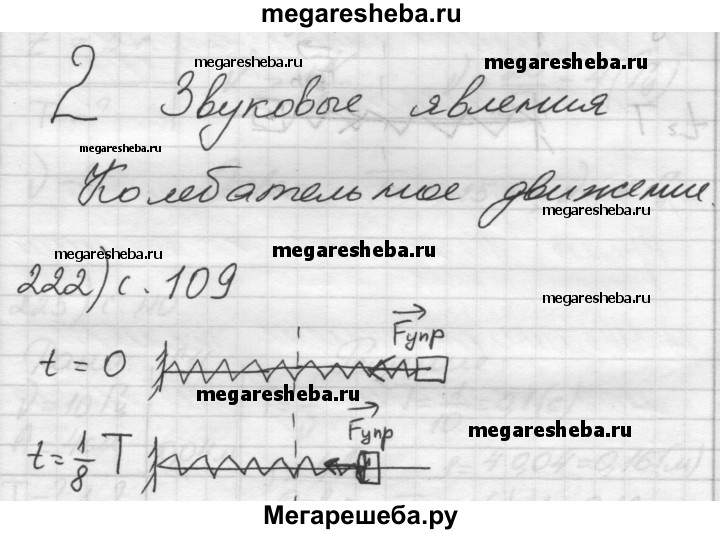 megaresheba.ru
megaresheba.ru megaresheba.ru
2 Звуковые явления
megaresheba.ru megaresheba.ru
Колебательное движение.
megaresheba.ru
megaresheba.ru megaresheba.ru
222) с. 109
megaresheba.ru
Fупр
t = 0
megaresheba.ru
Fупр
megaresheba.ru
t = 1/8 T
Мегарешеба.ру